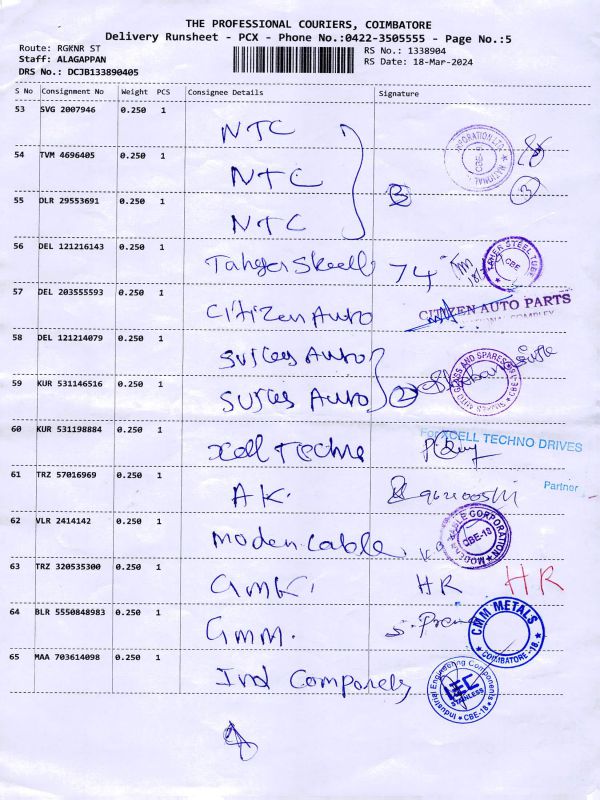 THE PROFESSIONAL COURIERS, COIMBATORE
Delivery Runsheet - PCX - Phone No.:0422-3505555 - Page No.:5
Route: RGKNR ST
RS No.: 1338904
Staff: ALAGAPPAN
RS Date: 18-Mar-2024
DRS No.: DCJB133890405
S No Consignment No Weight PCS Consignee Details Signature
53 SVG 2007946 0.250 1 NTC
54 TVM 4696405 0.250 1 NTC
55 DLR 29553691 0.250 1 NTC
3 3
56 DEL 121216143 0.250 1 Taher Steell 74
STEEL TUBE CBE
57 DEL 203555593 0.250 1 Citizen Auto
CITIZEN AUTO PARTS
58 DEL 121214079 0.250 1 Auto
59 KUR 531146516 0.250 1 Auto 2
AND SPARES
60 KUR 531198884 0.250 1 Xcell Techno
For XCELL TECHNO DRIVES
Partner
61 TRZ 57016969 0.250 1 AK.
62 VLR 2414142 0.250 1 Moden Cable
CABLE CORPORATION CBE-18
63 TRZ 320535300 0.250 1 HR HR
64 BLR 5550848983 0.250 1 CMM.
CMM METALS COIMBATORE-18
65 MAA 703614098 0.250 1 Ind
Industrial Engineering Components IEC STAINLESS CBE-18